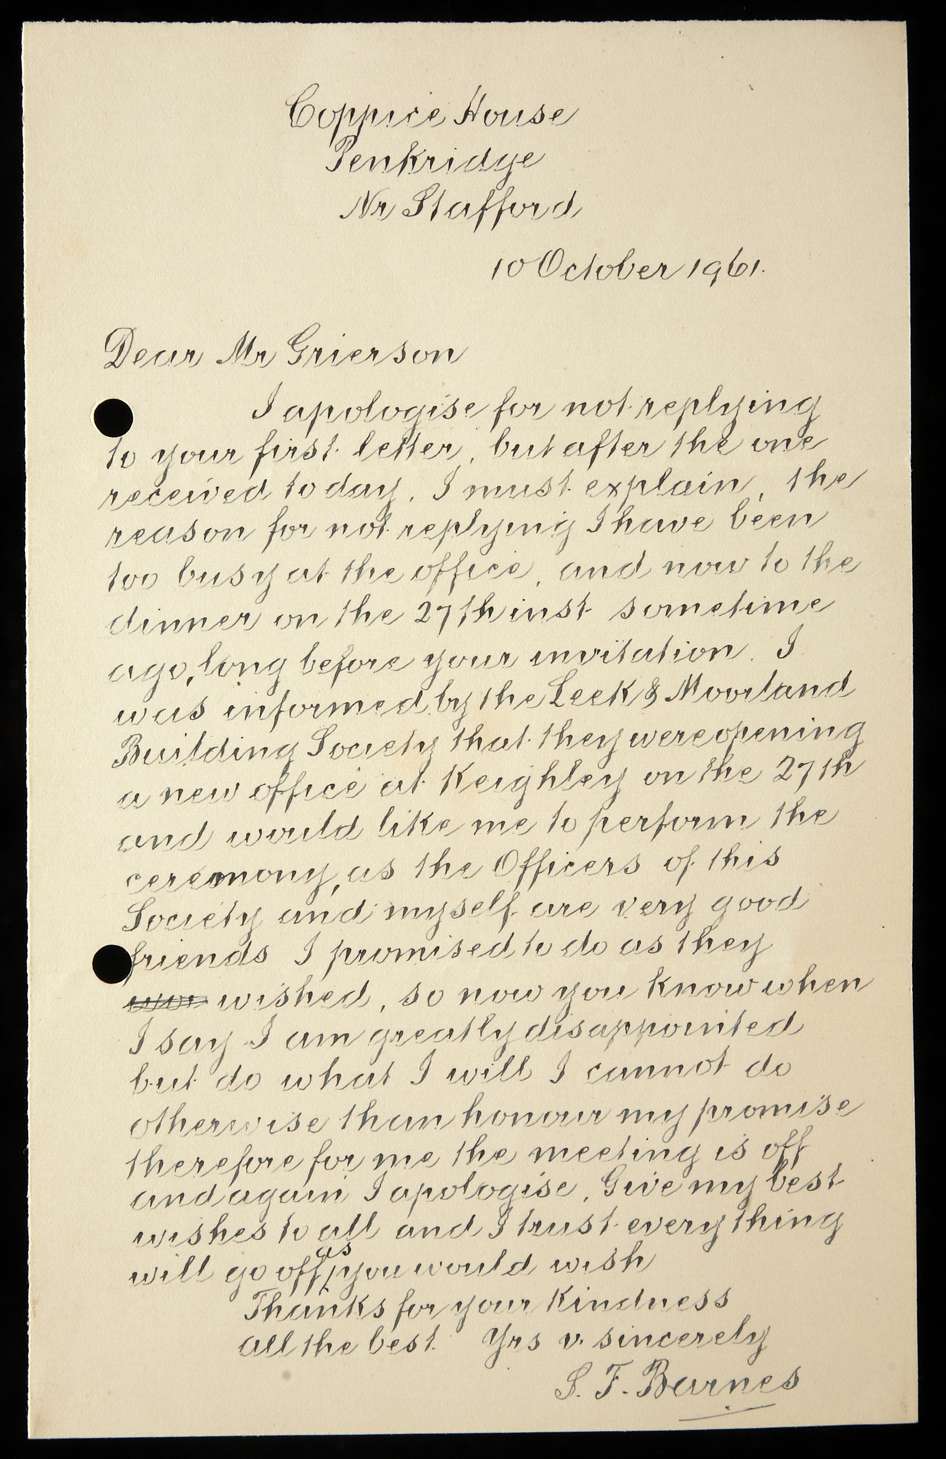 Coppice House
Penkridge
Nr Stafford
10 October 1961.
Dear Mr Grierson
I apologise for not replying
to your first letter, but after the one
received today, I must explain, the
reason for not replying I have been
too busy at the office, and now to the
dinner on the 27th inst sometime
ago, long before your invitation. I
was informed by the Leek & Moorland
Building Society that they were opening
a new office at Keighley on the 27th
and would like me to perform the
ceremony, as the Officers of this
Society and myself are very good
friends I promised to do as they
wished, so now you know when
I say I am greatly disappointed
but do what I will I cannot do
otherwise than honour my promise
therefore for me the meeting is off
and again I apologise, Give my best
wishes to all and I trust everything
will go off as you would wish
Thanks for your Kindness
All the best Yrs v. sincerely
S. F. Barnes